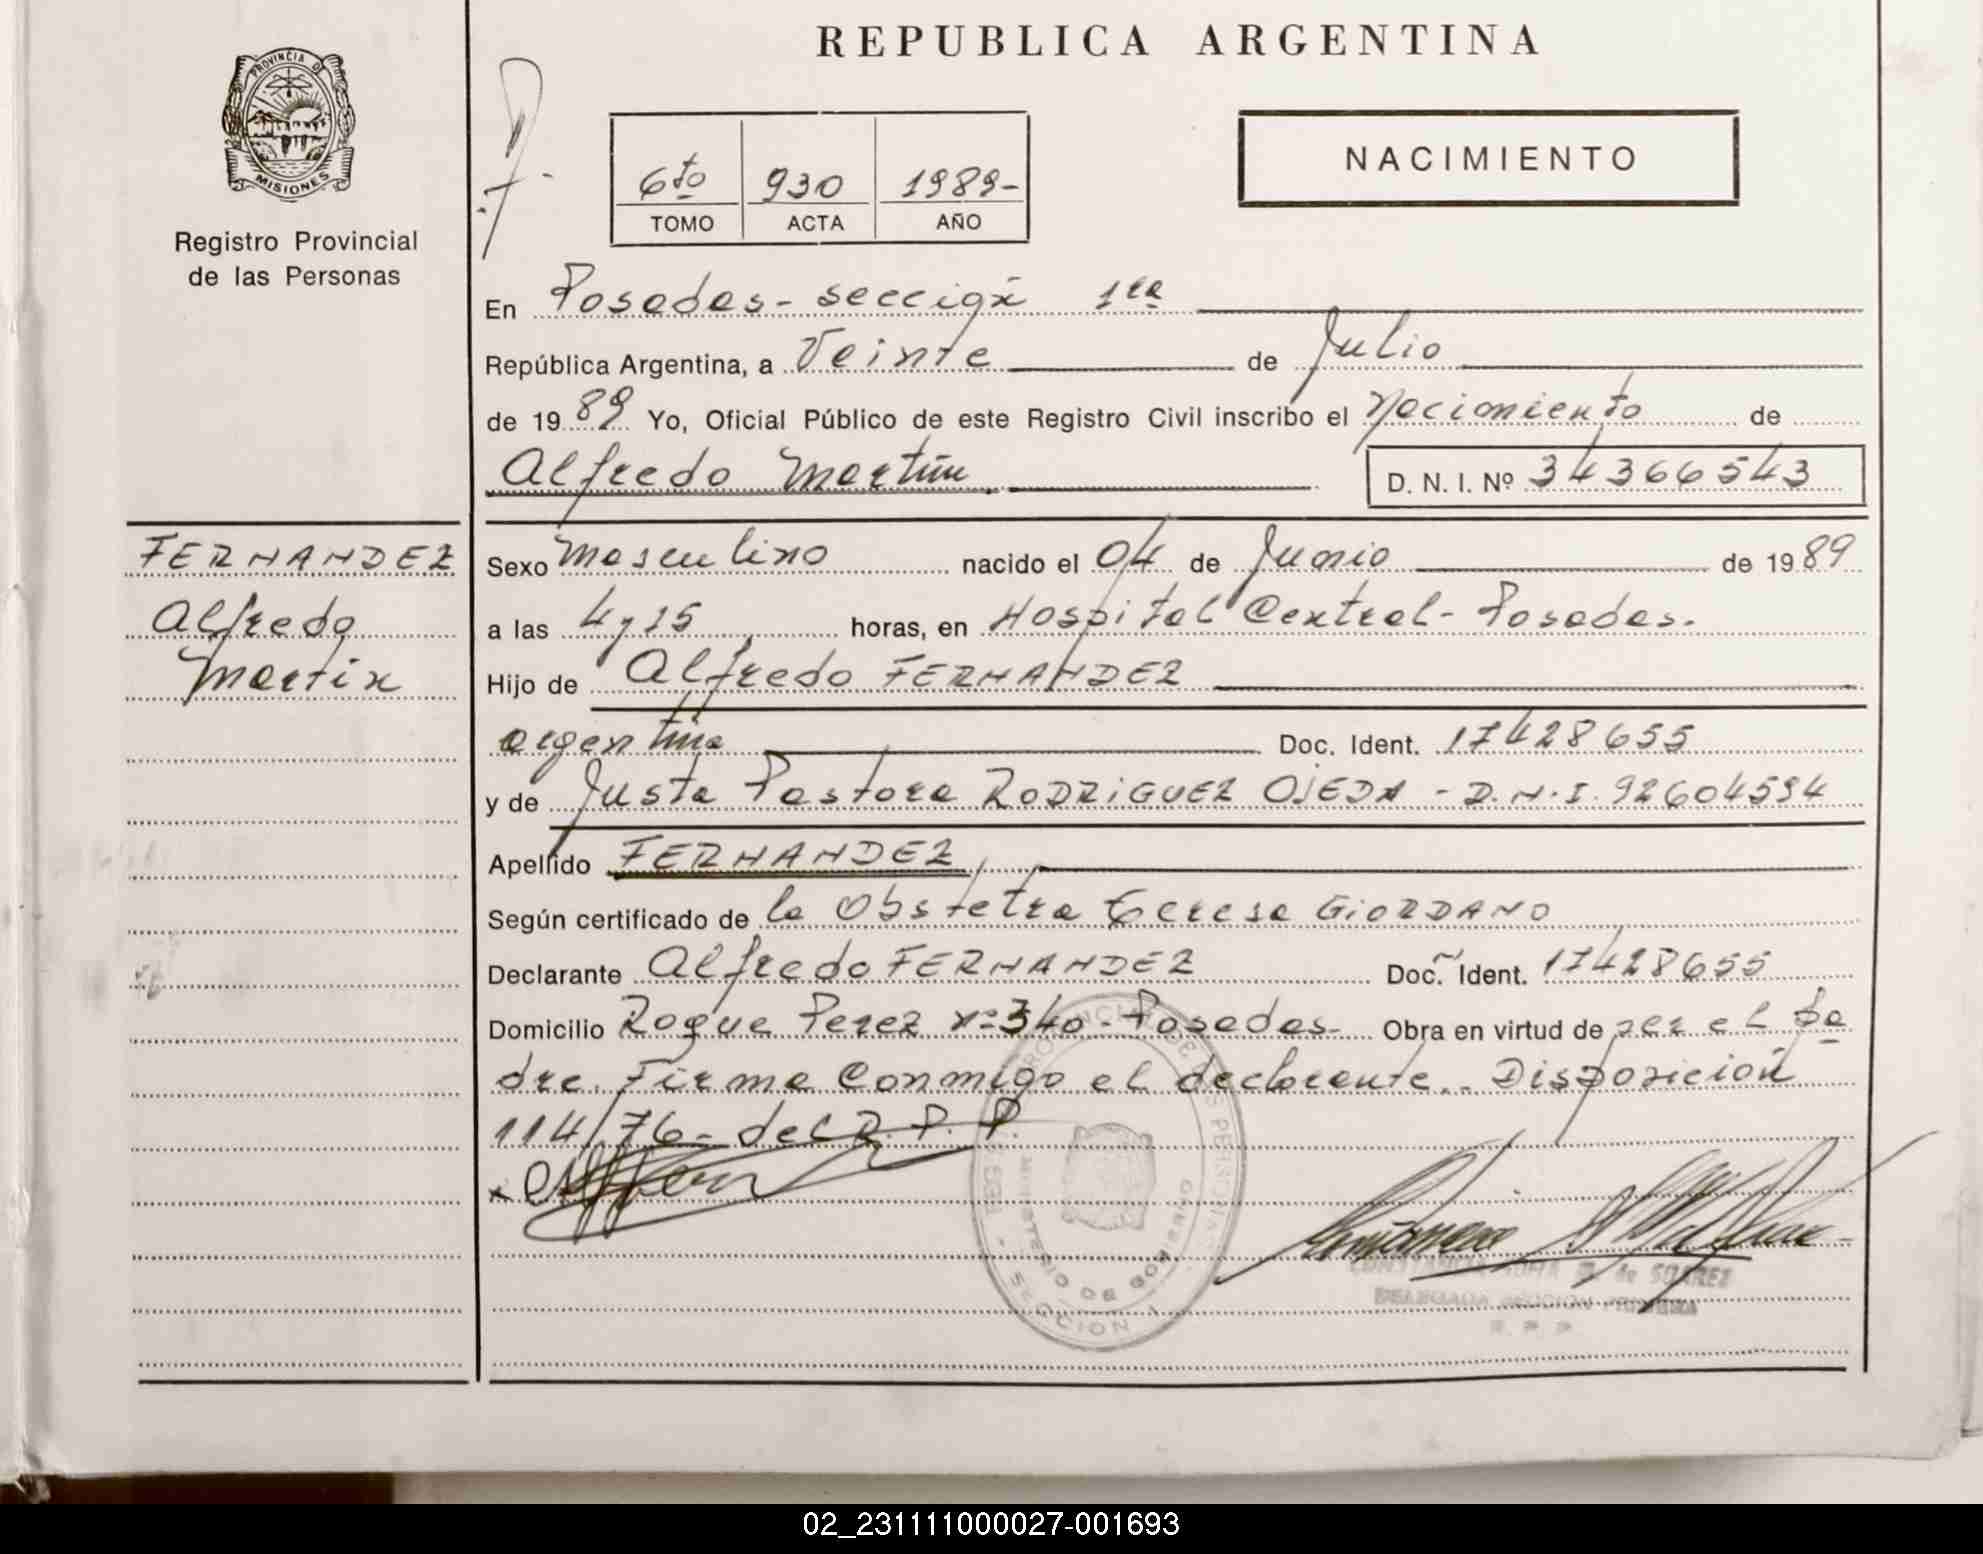 REPUBLICA ARGENTINA
PROVINCIA DE
MISIONES
Registro Provincial
de las Personas
6to 930 1989-
TOMO ACTA AÑO
NACIMIENTO
En Posadas - sección 1ra
República Argentina, a Veinte de Julio
de 1989 Yo, Oficial Público de este Registro Civil inscribo el Nacimiento de
Alfredo Martín. D. N. I. Nº 34366543
FERNANDEZ
Alfredo
Martín
Sexo Masculino nacido el 04 de Junio de 1989
a las 4 y 15 horas, en Hospital Central - Posadas.
Hijo de Alfredo FERNANDEZ
argentina Doc. Ident. 17428655
y de Justa Pastora RODRIGUEZ OJEDA - D.N.I. 92604594
Apellido FERNANDEZ
Según certificado de la Obstetra Teresa GIORDANO
Declarante Alfredo FERNANDEZ Doc. Ident. 17428655
Domicilio Roque Perez Nº 340 - Posadas - Obra en virtud de ser el Pa
dre. Firma Conmigo el declarante.. Disposición
114/76 - del R. P. P.
MINISTERIO DE GOBIERNO
SECCION 1
CONSTANCIA de SUAREZ
DELEGADA SECCION PRIMERA
R. P. P.
02_231111000027-001693